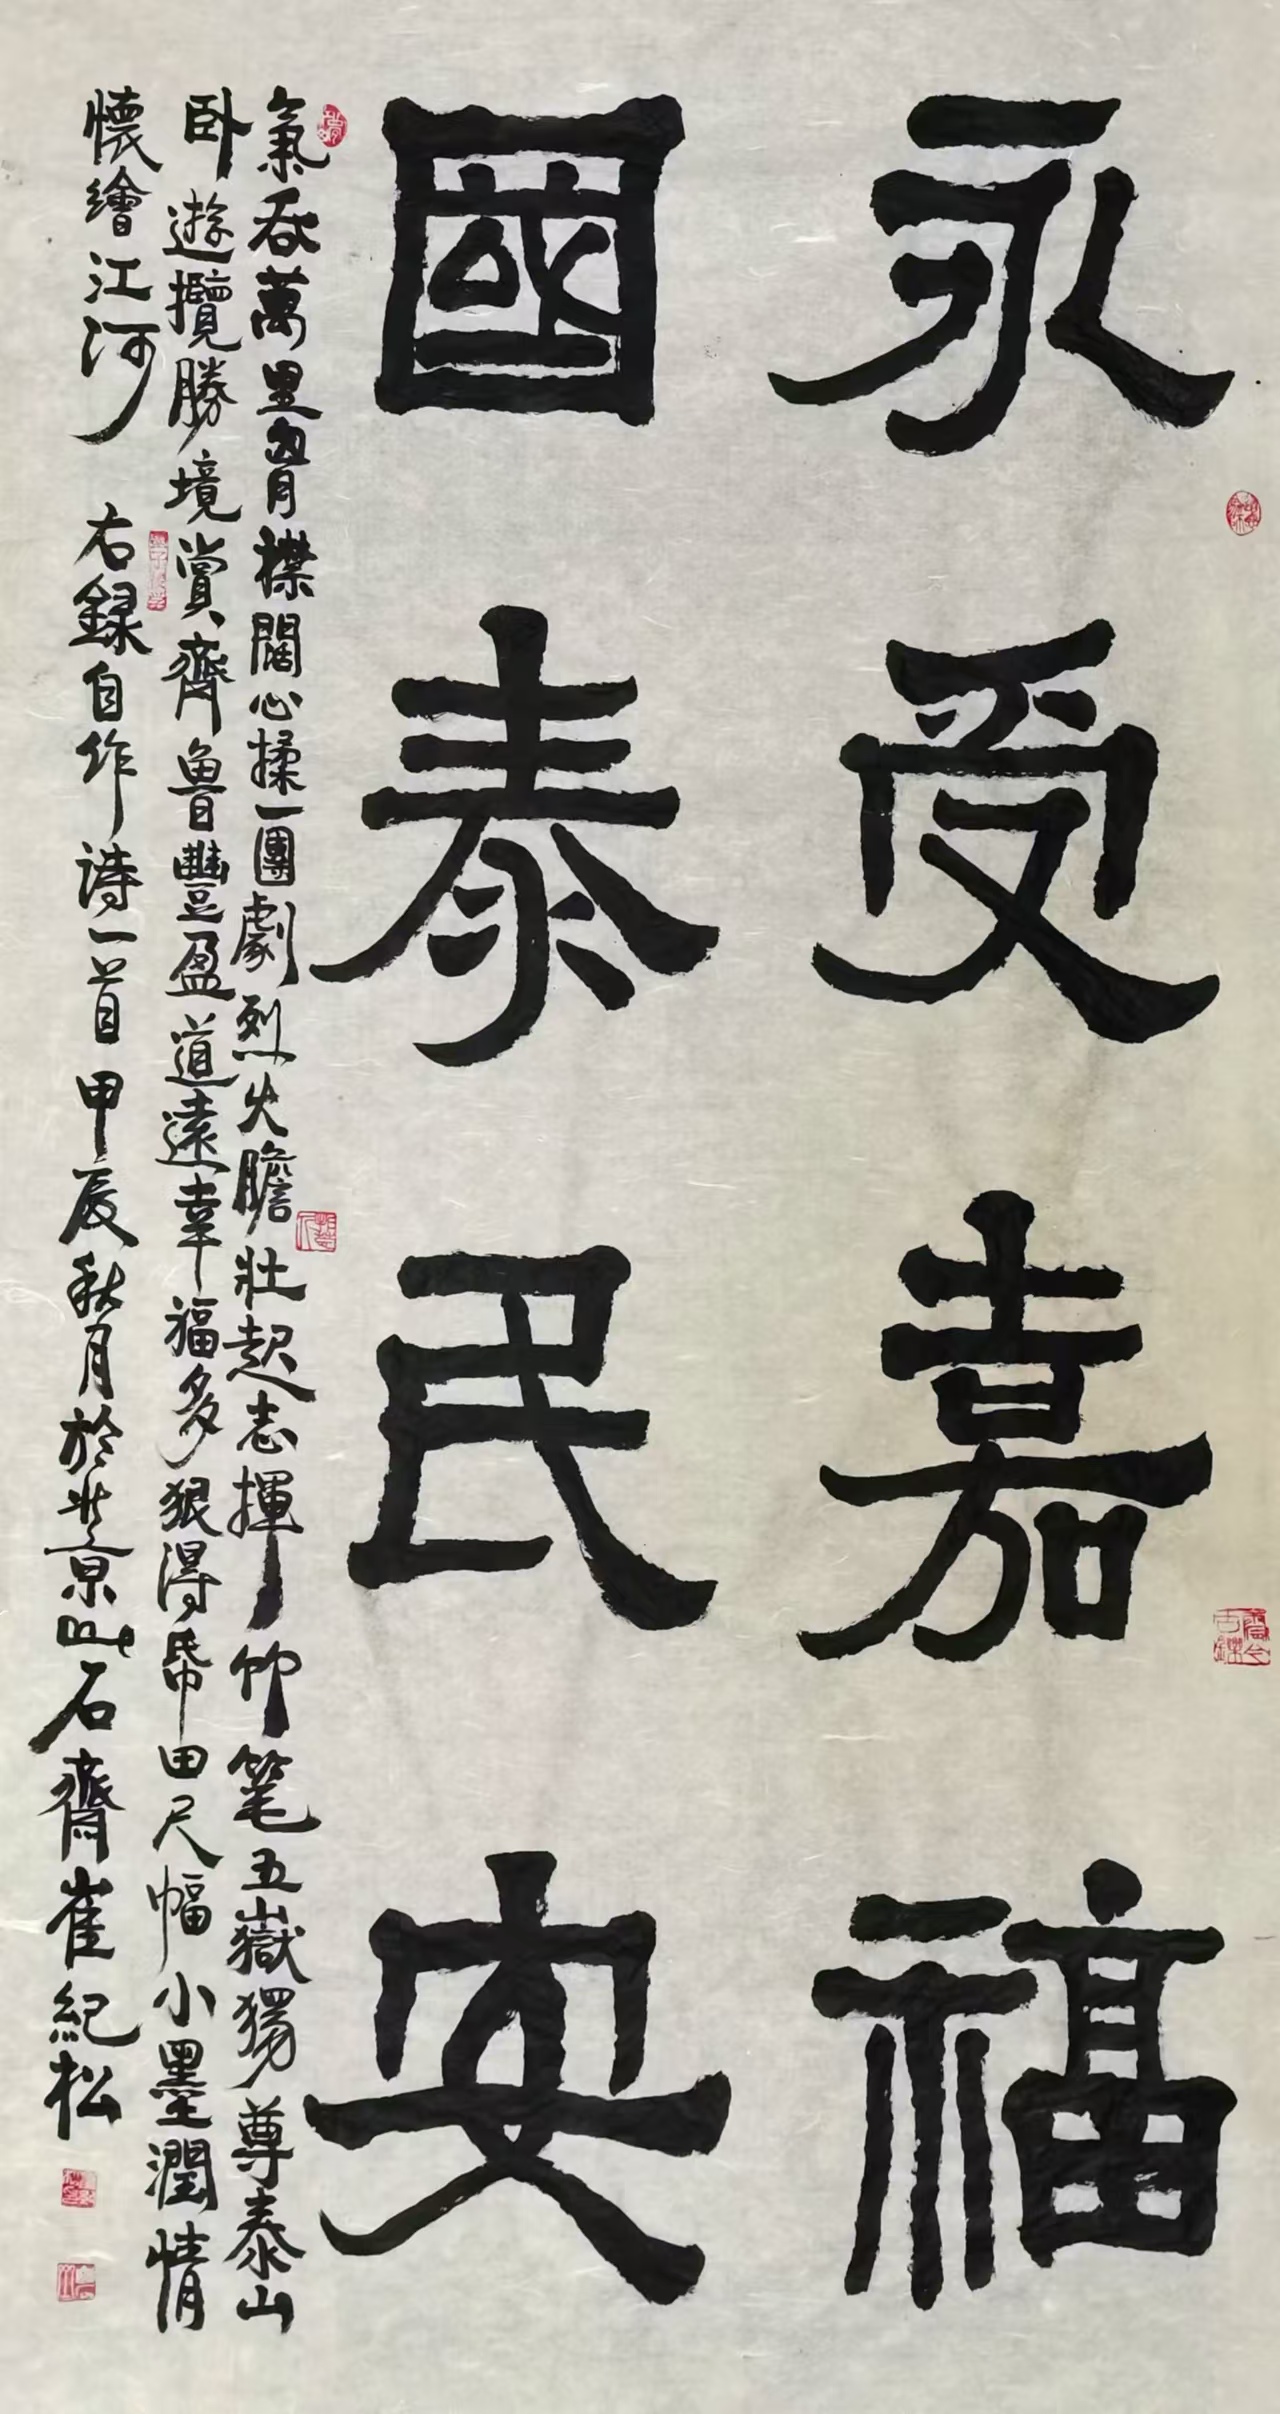 永受嘉福
國泰民安
氣吞萬里胷襟闊心揉一團劇烈火膽壯起志揮巾笔五嶽獨尊泰山
卧遊攬勝境賞齊魯豐盈道遠幸福多狠得帋田尺幅小墨潤情
懷繪江河 右録自作诗一首 甲辰秋月於北京 石齋崔紀松